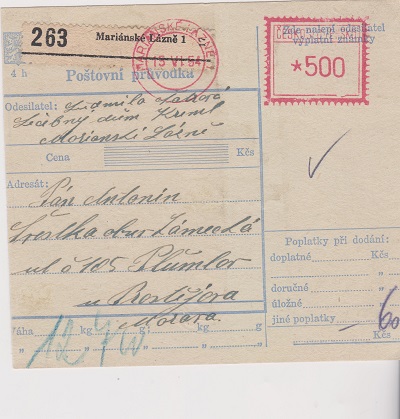 263 Mariánské Lázně 1
MARIÁNSKÉ LÁZNĚ
13 VI 54
Zde nalepí odesílatel
výplatní známky
*500
4 h Poštovní průvodka
Odesílatel: Ludmila
Léčebný dům Kreml
Marianské Lázně
Cena Kčs
Adresát:
Pán Antonin
obuv Zámecká
ul č 105 Plumlov
u Prostějova
Morava
Poplatky při dodání:
doplatné Kčs
doručné
úložné
jiné poplatky 60
Kčs
Váha kg g kg g